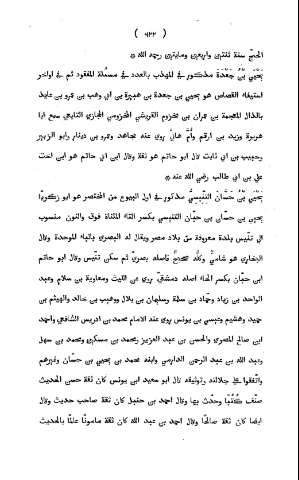 ( ٦٢٢ )
الحجّ سنة ثلثين واربعين ومايتين رحمه الله ۞
يَحْيَى بْنُ جَعْدَةَ مذكور فى المهذب بالعدد فى مسئلة المفقود ثم فى اواخر
استيفاء القصاص هو يحيى بن جعدة بن هبيرة بن ابى وهب بن عمرو بن عايذ
بالذال المعجمة بن عمران بن مخزوم القريشى المخزومى الحجازى التابعى سمع ابا
هريرة وزيد بن ارقم وأمّ هانئ روى عنه مجاهد وعمرو بن دينار وابو الزبير
وحبيب بن ابى ثابت قال ابو حاتم هو ثقة وقال ابن ابى حاتم هو ابن اخت
على بن ابى طالب رضى الله عنه ۞
يَحْيَى بْنُ حَسَّانَ التِّنِّيسِىُّ مذكور فى اول البيوع من المختصر هو ابو زكريا
يحيى بن حسّان بن حيّان التنيسى بكسر التاء المثناة فوق والنون منسوب
الى تنّيس بلدة معروفة من بلاد مصر ويقال له البصرى بالباء الموحدة وقال
البخارى هو شامىّ وكلّه صحيح فاصله بصرى ثم سكن تنّيس وقال ابو حاتم
ابن حبّان بكسر الحاء اصله دمشقى روى عن الليث ومعاوية بن سلام وعبد
الواحد بن زياد وحمّاد بن سلمة وسليمان بن بلال ووهيب بن خالد والهيثم بن
حميد وهشيم وعيسى بن يونس روى عنه الامام محمد بن ادريس الشافعى واحمد
ابن صالح المصرى والحسن بن عبد العزيز ومحمد بن مسكين ومحمد بن سهل
وعبد الله بن عبد الرحمن الدارمى وابنه محمد بن يحيى بن حسّان وغيرهم
واتّفقوا على جلالته وتوثيقه قال ابو سعيد ابن يونس كان ثقة حسن الحديث
صنّف كُتُبًا وحدّث بها وقال احمد بن حنبل كان ثقة صاحب حديث وقال
ايضا كان ثقة صالحًا وقال احمد بن عبد الله كان ثقة مامونًا عالمًا بالحديث